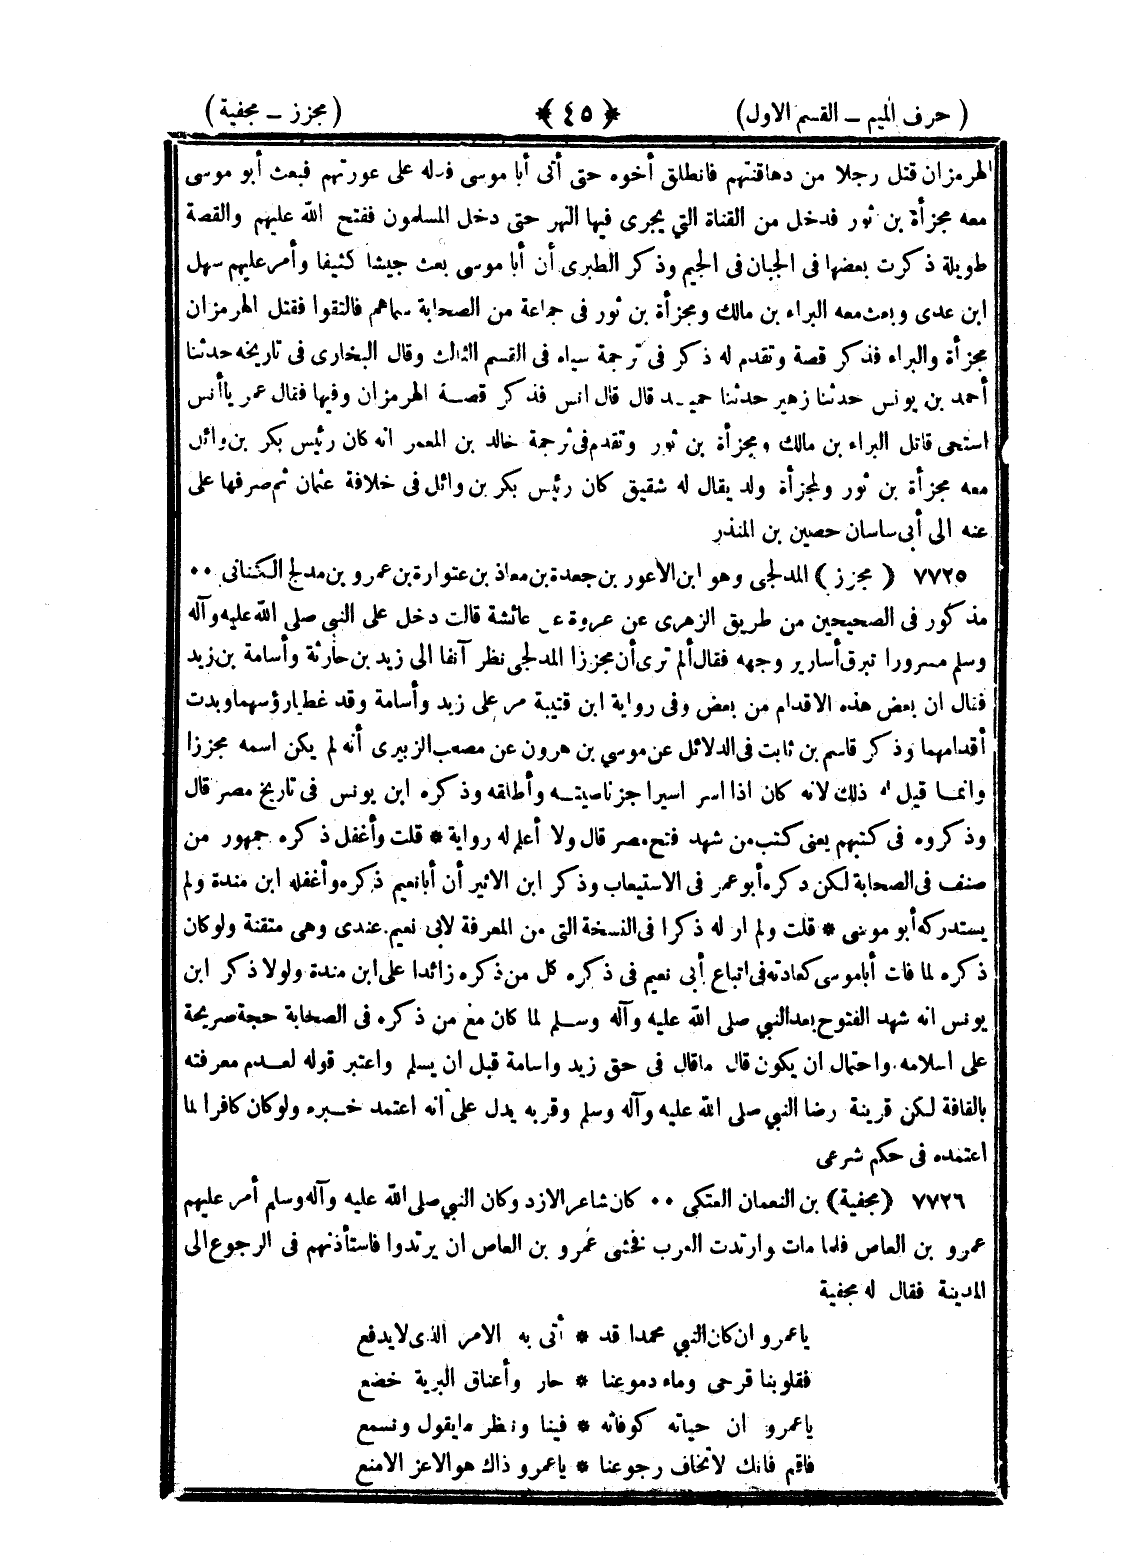 ( حرف الميم ـ القسم الاول)
﴿ ٤٥ ﴾
(مجزز ـ مجفية )
الهرمزان قتل رجلا من دهاقنتهم فانطلق أخوه حتى أتى أبا موسى فدله على عورتهم فبعث أبو موسى
معه مجزأة بن ثور فدخل من القناة التي يجرى فيها النهر حتى دخل المسلمون ففتح الله عليهم والقصة
طويلة ذكرت بعضها فى الجبان فى الجيم وذكر الطبرى أن أبا موسى بعث جيشا كثيفا وأمر عليهم سهل
ابن عدى وبعث معه البراء بن مالك ومجزأة بن ثور فى جماعة من الصحابة سماهم فالتقوا فقتل الهرمزان
مجزأة والبراء فذكر قصة وتقدم له ذكر فى ترجمة سياه فى القسم الثالث وقال البخارى فى تاريخه حدثنا
أحمد بن يونس حدثنا زهير حدثنا حميد قال قال انس فذكر قصة الهرمزان وفيها فقال عمر ياأنس
استحى قاتل البراء بن مالك ومجزأة بن ثور وتقدم فى ترجمة خالد بن المعمر انه كان رئيس بكر بن وائل
معه مجزأة بن ثور ولمجزأة ولد يقال له شقيق كان رئيس بكر بن وائل فى خلافة عثمان ثم صرفها على
عنه الى أبى ساسان حصين بن المنذر
٧٧٢٥ ( مجزز ) المدلجى وهو ابن الاعور بن جعدة بن معاذ بن عتوارة بن عمرو بن مدلج الكنانى ٠٠
مذكور فى الصحيحين من طريق الزهرى عن عروة عن عائشة قالت دخل على النبي صلى الله عليه وآله
وسلم مسرورا تبرق أسارير وجهه فقال ألم ترى أن مجززا المدلجى نظر آنفا الى زيد بن حارثة وأسامة بن زيد
فقال ان بعض هذه الاقدام من بعض وفى رواية ابن قتيبة مر على زيد وأسامة وقد غطيا رؤسهما وبدت
أقدامهما وذكر قاسم بن ثابت فى الدلائل عن موسي بن هرون عن مصعب الزبيرى أنه لم يكن اسمه مجززا
وانما قيل له ذلك لانه كان اذا اسر اسيرا جز ناصيته وأطلقه وذكره ابن يونس فى تاريخ مصر قال
وذكروه فى كتبهم يعنى كتب من شهد فتح مصر قال ولا أعلم له رواية * قلت وأغفل ذكره جمهور من
صنف فى الصحابة لكن ذكره أبو عمر فى الاستيعاب وذكر ابن الاثير أن أبا نعيم ذكره وأغفله ابن مندة ولم
يستدركه أبو موسى * قلت ولم ار له ذكرا فى النسخة التى من المعرفة لابى نعيم عندى وهى متقنة ولوكان
ذكره لما فات أباموسى كعادته فى اتباع أبى نعيم فى ذكره كل من ذكره زائدا على ابن مندة ولولا ذكر ابن
يونس انه شهد الفتوح بعد النبي صلى الله عليه وآله وسلم لما كان مع من ذكره فى الصحابة حجة صريحة
على اسلامه واحتمال ان يكون قال ماقال فى حق زيد واسامة قبل ان يسلم واعتبر قوله لعدم معرفته
بالقافة لكن قرينة رضا النبي صلى الله عليه وآله وسلم وقربه يدل على أنه اعتمد خبره ولوكان كافرا لما
اعتمده فى حكم شرعى
٧٧٢٦ (مجفية) بن النعمان العتكى ٠٠ كان شاعر الازد وكان النبي صلى الله عليه وآله وسلم أمر عليهم
عمرو بن العاص فلما مات وارتدت العرب فخشى عمرو بن العاص ان يرتدوا فاستأذنهم فى الرجوع الى
المدينة فقال له مجفية
ياعمرو ان كان النبي محمدا قد * أتى به الامر الذى لايدفع
فقلوبنا قرحى وماء دموعنا * جار وأعناق البرية خضع
ياعمرو ان حياته كوفاته * فينا وننظر مايقول ونسمع
فاقم فانك لاتخاف رجوعنا * ياعمرو ذاك هو الاعز الامنع